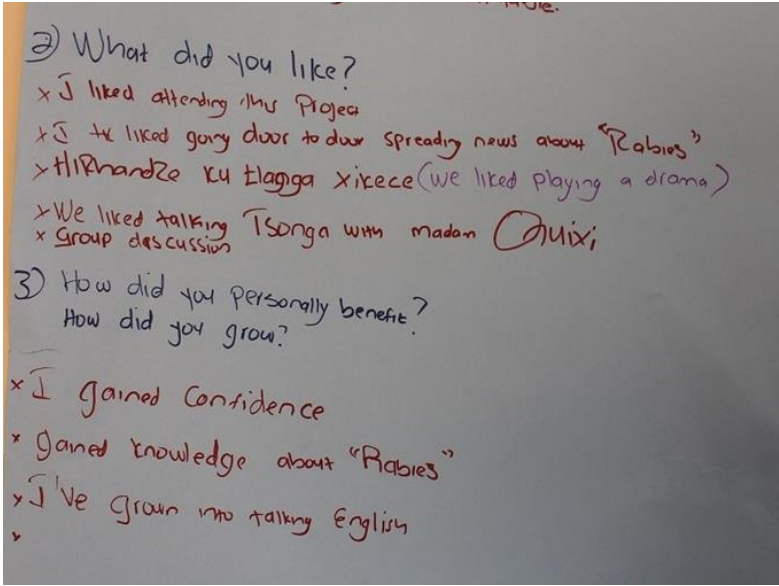 2) What did you like?
x I liked attending this Project
x I liked going door to door spreading news about "Rabies"
x HiRhandze ku tlanga xikece (we liked playing a drama)
x We liked talking Tsonga with madam
x Group descussion
3) How did you personally benefit?
How did you grow?
x I gained Confidence
x gained knowledge about "Rabies"
x I've grown into talking English
x